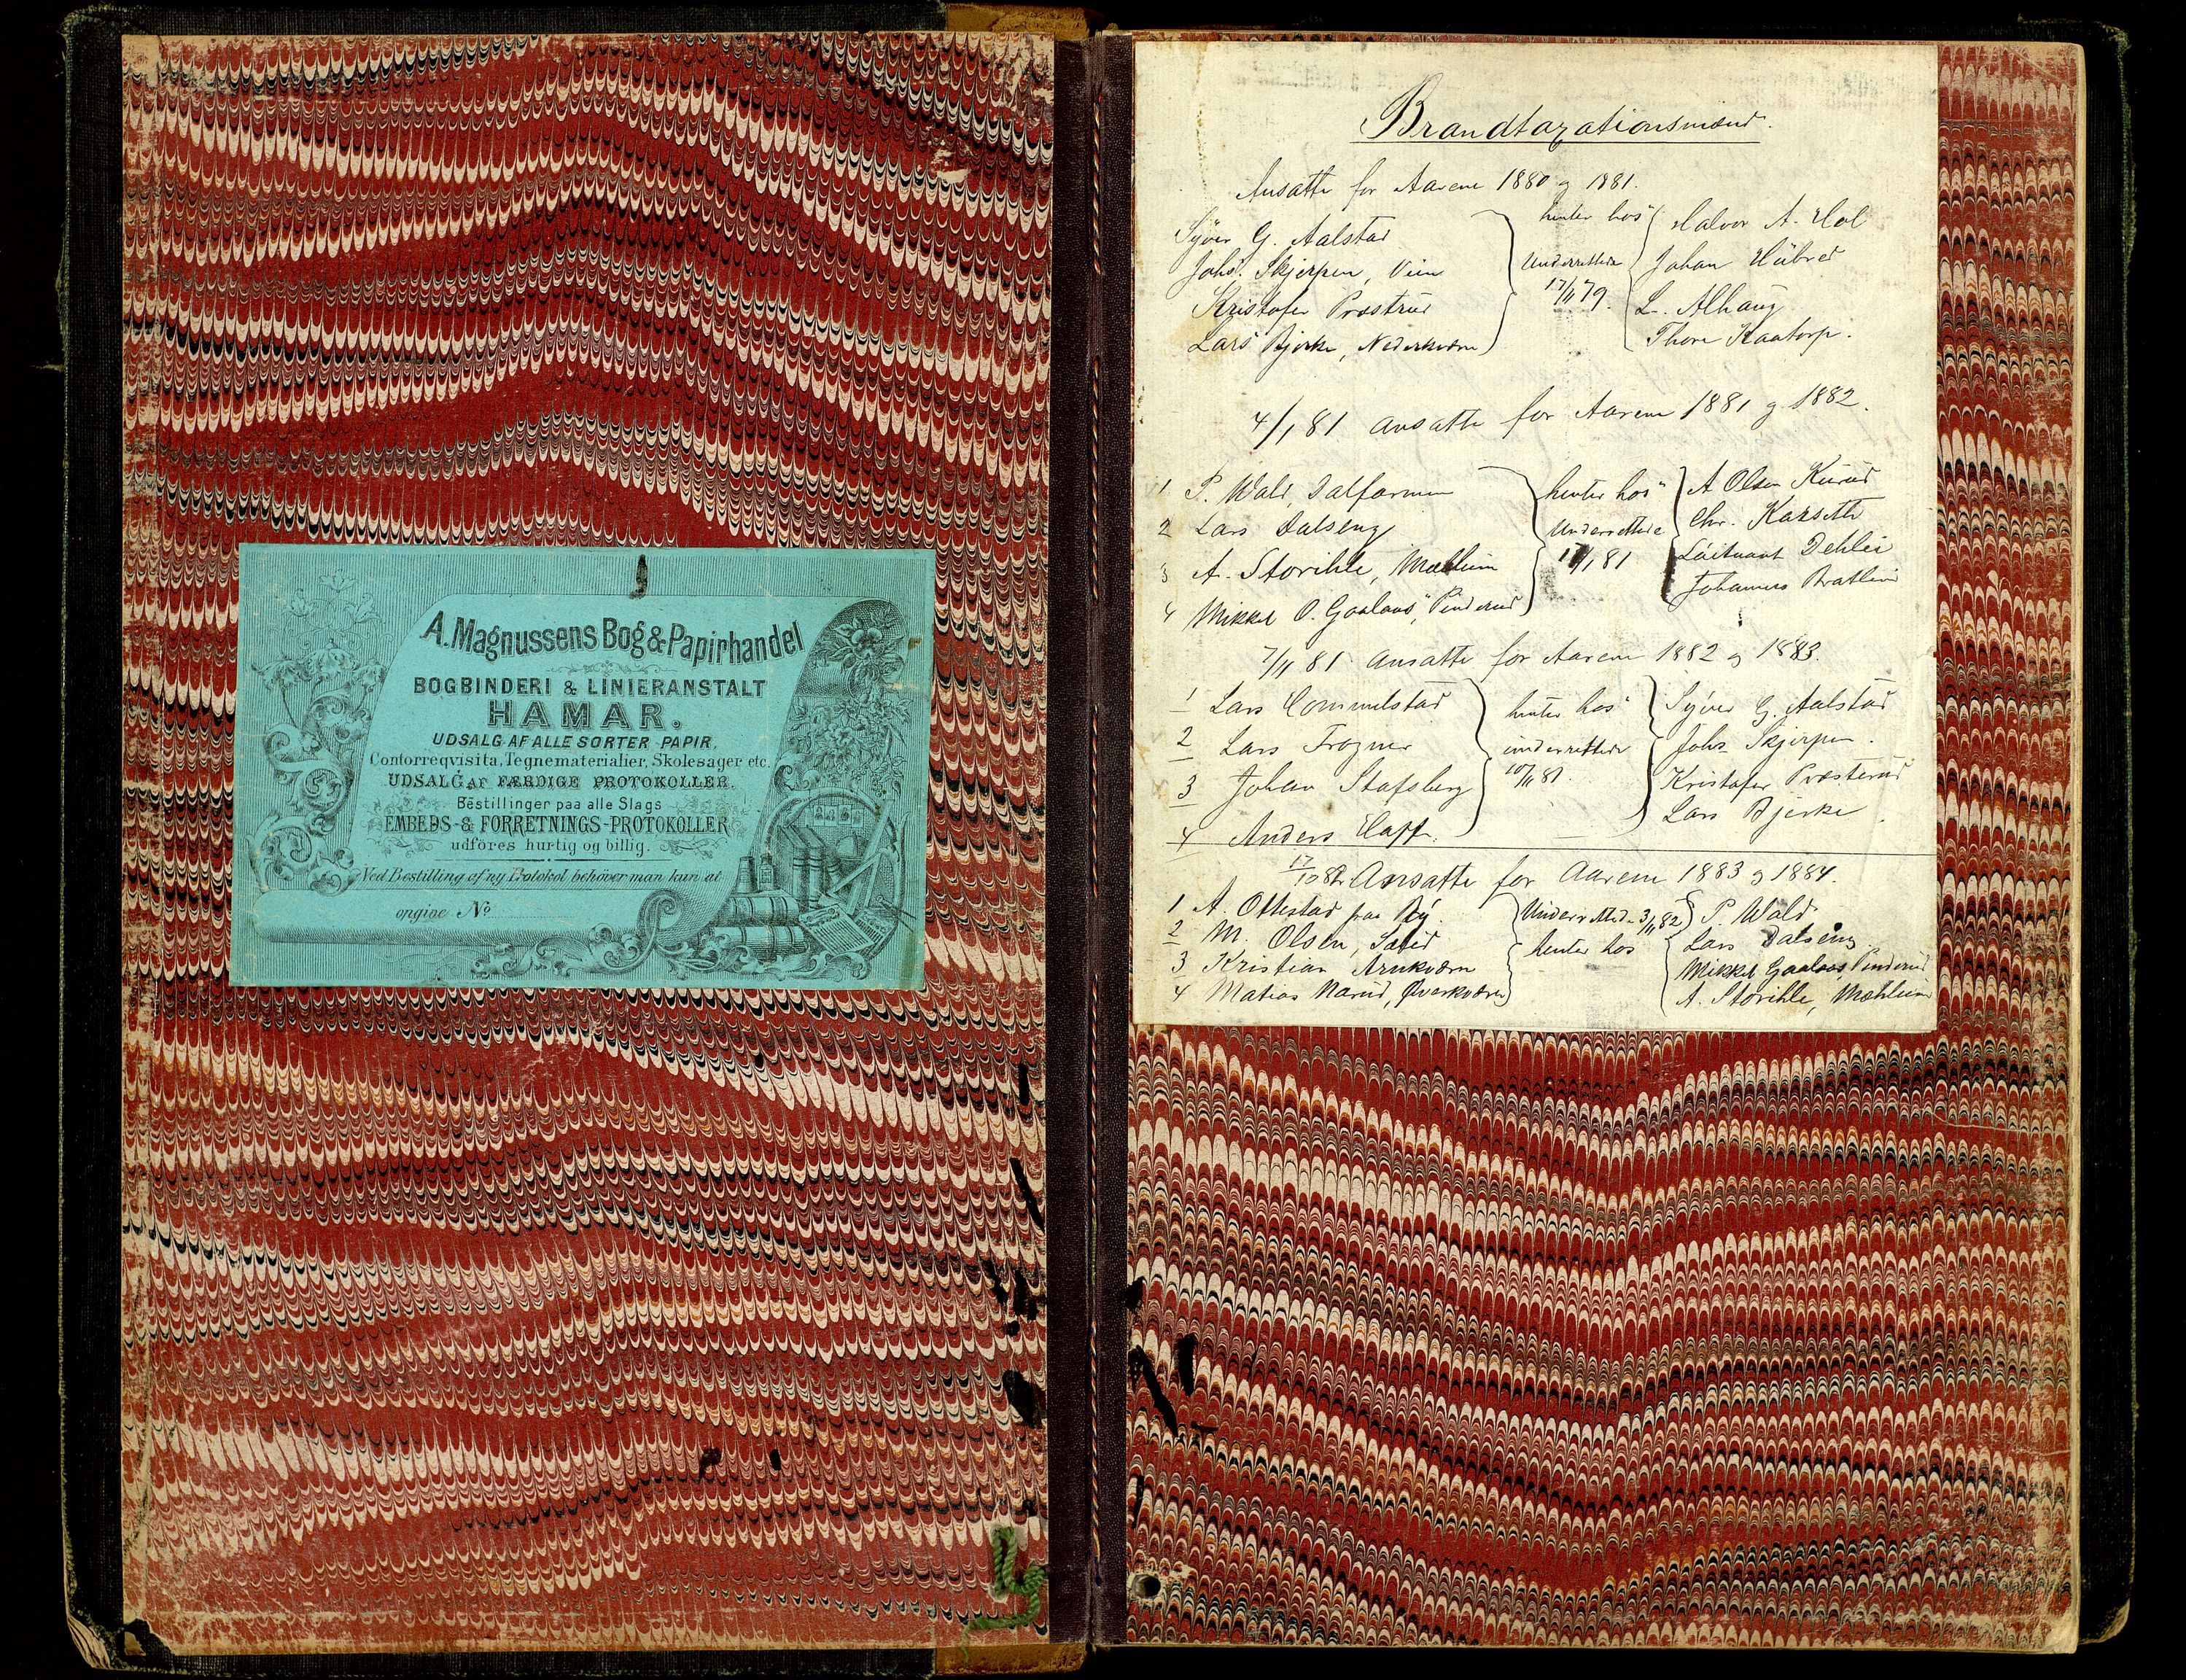 A. Magnussens Bog & Papirhandel
BOGBINDERI & LINIERANSTALT
HAMAR.
UDSALG AF ALLE SORTER PAPIR,
Contorreqvisita, Tegnematerialier, Skolesager etc.
UDSALG AF FÆRDIGE PROTOKOLLER.
Bestillinger paa alle Slags
EMBEDS- & FORRETNINGS-PROTOKOLLER
udföres hurtig og billig.
Ved Bestilling af ny Protokol behöver man kun at
opgive No
Brandtaxationsmænd.
Ansatte for Aarene 1880 og 1881.
Syver G. Aalstad
Johs. Skjerpen, Vien
Kristofer Præstrud
Lars Bjerke, Nederkværn
henter hos
Underrettede
17/11 79.
Halvor A. Hol
Johan Hübred
L. Alhaug
Thore Kaatorp.
4/1 81 ansatte for Aarene 1881 og 1882.
1 P. Wald, Dalfarmen
2 Lars Dalseng
3 A. Storihle, Mæhlum
4 Mikkel O. Gaalaas, Pinderud
henter hos
Underrettede
17/1 81
A Olsen Kurud
Chr. Karseth
Løitnant Dehlie
Johannes Bratlie
7/11 81 ansatte for Aarene 1882 og 1883.
1 Lars Commelstad
2 Lars Frogner
3 Johan Stafsberg
4 Anders Haff.
henter hos
underrettede
10/11 81.
Syver G. Aalstad
Johs Skjerpen.
Kristofer Præsterud
Lars Bjerke.
17/10 82 Ansatte for Aarene 1883 og 1884.
1 A. Ottestad paa By.
2 M. Olsen, Sælid
3 Kristian Arnkværn
4 Matias Narud, Øverkværn
Underrettede 3/11 82
henter hos
P. Wald
Lars Dalseng
Mikkel Gaalaas Pinderud
A. Storihle, Mæhlum